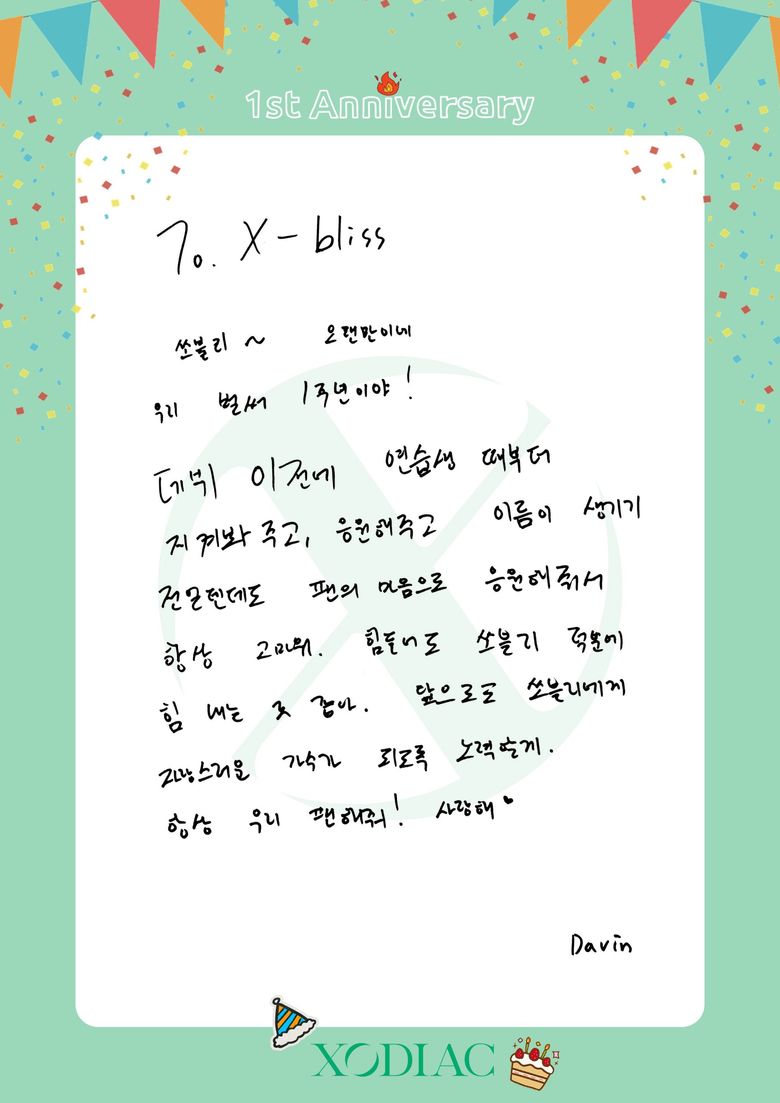 1st Anniversary
To. X-bliss
쏘블리 ~ 오랜만이네
우리 벌써 1주년이야!
데뷔 이전에 연습생 때부터
지켜봐 주고, 응원해주고 이름이 생기기
전일텐데도 팬의 마음으로 응원해줘서
항상 고마워. 힘들어도 쏘블리 덕분에
힘 내는 것 같아. 앞으로도 쏘블리에게
자랑스러운 가수가 되도록 노력할게.
항상 우리 팬해줘! 사랑해♥
Davin
XODIAC